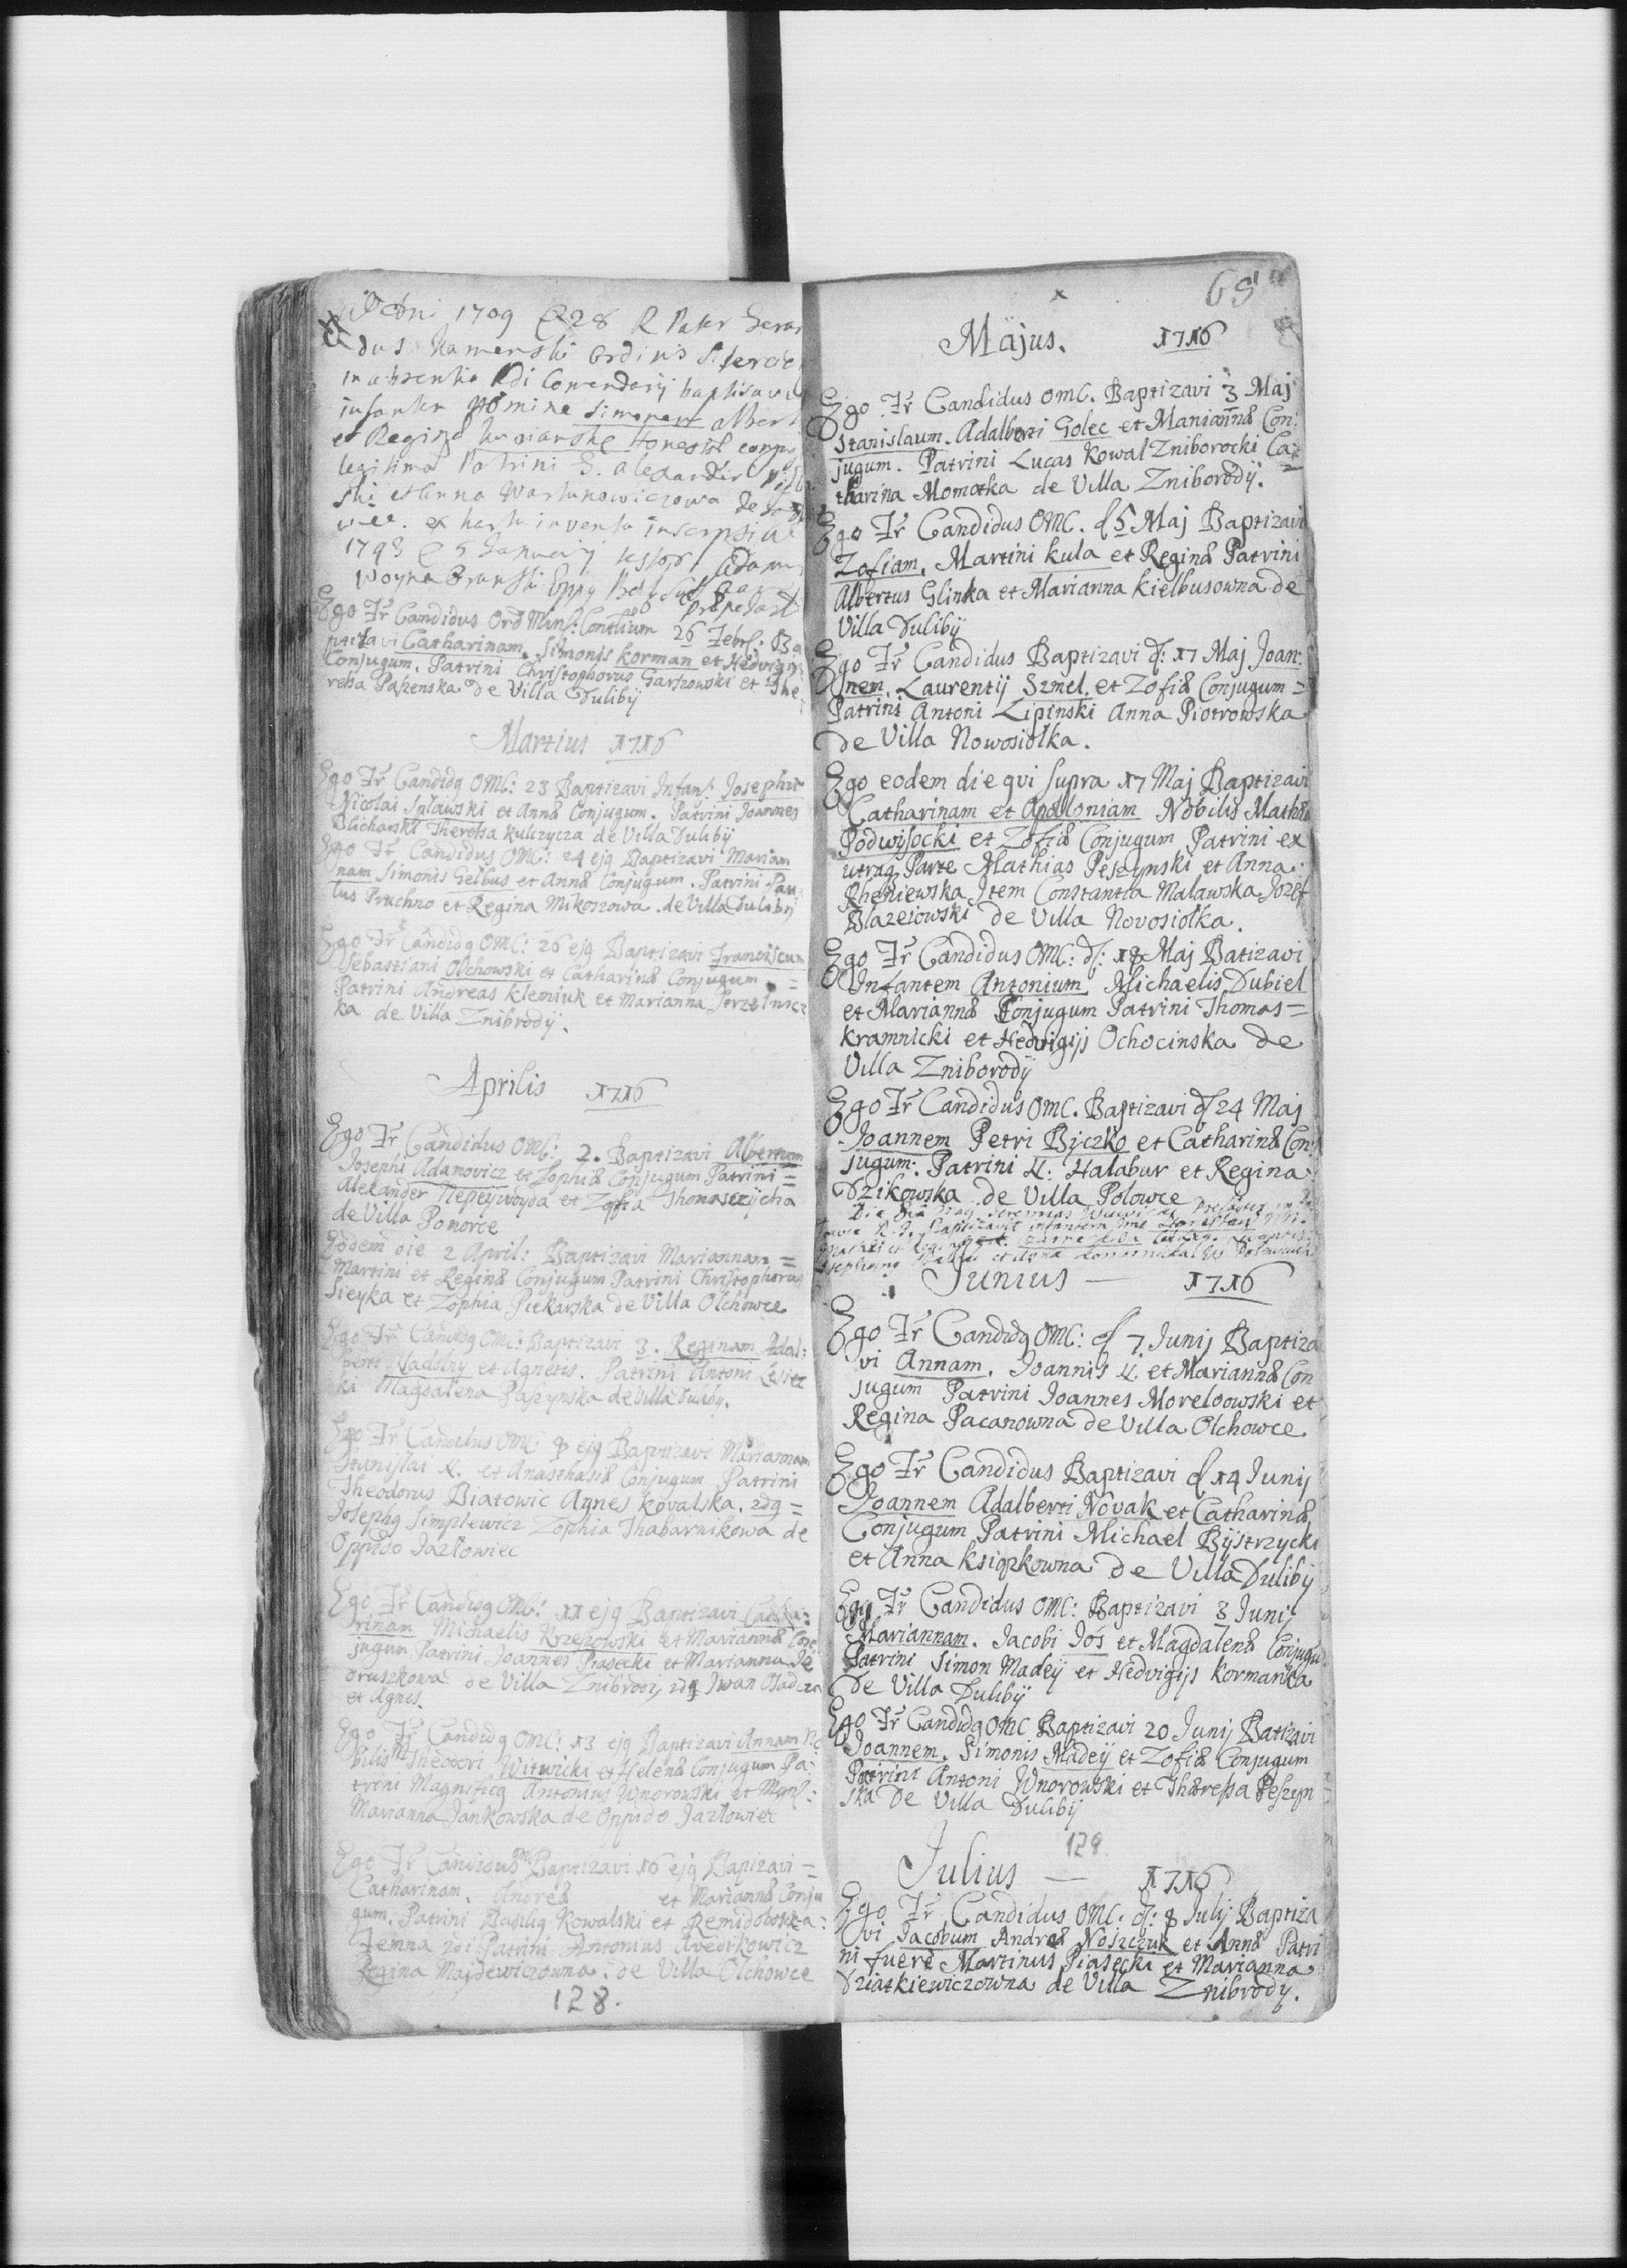 Ani 1709 28 R Pater Gerar
dus Kamenski Ordinis
in absentia Rdi Comendarij baptisavit
infantem nomine Simonem Albert
et Regina
legitima Patrini G. Alexander
ski et Anna Wartanowiczowa de
ex harta inventa inscripsi
1743 5 Januarij testor Adam
Woyna Oranski
Ego Fr Candidus Ord Min: Contium 26 Febr. Ba
ptizavi Catharinam. Simonis Korman et Hedvigis
Conjugum. Patrini Christophorus Garszowski et The
resa Paszenska de Villa Duliby
Martius 1716
Ego Fr Candidq OMC: 23 Baptizavi Infan: Josephum
Nicolai Splawski et Annæ Conjugum. Patrini Joannes
Blicharski Theresa Kulczycza de Villa Dulibÿ
Ego Fr Candidus OMC: 24 ejq Baptizavi Marian
nam Simonis Gelbus et Annæ Conjugum. Patrini Pau
lus Pruchno et Regina Mikoszowa de Villa Dulibÿ
Ego Fr Candidq OMC: 26 ejq Baptizavi Franciscum
Sebastiani Olchowski et Catharinæ Conjugum =
Patrini Andreas Klemiuk et Marianna
ka de Villa Znibrodÿ.
Aprilis 1716
Ego Fr Candidus OMC: 2. Baptizavi Albertum
Josephi Adamovicz et Zophiæ Conjugum Patrini =
Alexander Nepeÿwoyda et Zofia Thomaszÿcha
de Villa Pomorce
Eodem die 2 April: Baptizavi Mariannam =
Martini et Reginæ Conjugum Patrini Christophorus
Sieyka et Zophia Piekarska de Villa Olchowce
Ego Fr Candidq OMC: Baptizavi 3. Reginam Adal:
berti Nadolny et Agnetis. Patrini Antoni Lewic
ki Magdalena Paszynska de Villa Duliby.
Ego Fr Candidus OMC: 8 ejq Baptizavi Mariannam
Stanislai N. et Anasthasiæ Conjugum Patrini
Theodorus Biatowic Agnes Kovalska. 2dq =
Josephq Simplewicz Zophia Thabarnikowa de
Oppido Jazlowiec
Ego Fr Candidq OMC: 11 ejq Baptizavi Catha:
rinam Michaelis Krzehowski et Mariannæ Con
jugum Patrini Joannes Piasecki et Marianna Je
druszkowa de Villa Znibrody, 2dq Iwan
et Agnes.
Ego Fr Candidq OMC: 13 ejq Baptizavi Annam No
bilis Theodori Witwicki et Helenæ Conjugum Pa:
trini Magnificq Antonius Wnorowski et Mgnf:
Marianna Jankowska de Oppido Jazlowiec
Ego Fr Candidus Baptizavi 16 ejq Baptizavi =
Catharinam. Andreæ et Mariannæ Conju
gum. Patrini Basiliq Kowalski et
2di Patrini Antonius Avedikowicz
Regina Majdewiczowna. de Villa Olchowce
128.
65
Majus. 1716
Ego Fr Candidus OMC. Baptizavi 3 Maj
Stanislaum. Adalberti Golec et Mariannæ Con:
jugum. Patrini Lucas Kowal Zniborocki Ca=
tharina Momotka de Villa Zniborodÿ.
Ego Fr Candidus OMC. d 5 Maj Baptizavi
Zofiam. Martini Kula et Reginæ Patrini
Albertus Glinka et Marianna Kielbusowna de
Villa Dulibÿ
Ego Fr Candidus Baptizavi d: 17 Maj Joan:
nem. Laurentij Szmel. et Zofiæ Conjugum =
Patrini Antoni Lipinski Anna Piotrowska
de Villa Nowosiolka.
Ego eodem die qvi supra 17 Maj Baptizavi
Catharinam et Apolloniam Nobilis Mathiæ
Podwisocki et Zofiæ Conjugum Patrini ex
utraq Parte Mathias Peszynski et Anna
Rheniewska Item Constantia Malawska Jozef
Blazeiowski de Villa Novosiolka.
Ego Fr Candidus OMC: d: 18 Maj Batizavi
Infantem Antonium Michaelis Dubiel
et Mariannæ Conjugum Patrini Thomas =
Kramnicki et Hedvigijs Ochocinska de
Villa Zniborodÿ
Ego Fr Candidus OMC. Baptizavi d 24 Maj
Joannem Petri Byczko et Catharinæ Con
jugum. Patrini N: Halabur et Regina
Dzikowska de Villa Polowce
Junius — 1716
Ego Fr Candidq OMC: d 7. Junij Baptiza
vi Annam. Joannis N. et Mariannæ Con
jugum Patrini Joannes Morelowski et
Regina Pacanowna de Villa Olchowce
Ego Fr Candidus Baptizavi d 14 Junij
Joannem Adalberti Novak et Catharinæ
Conjugum Patrini Michael Bÿstrzycki
et Anna Ksiązkowna de Villa Dulibÿ
Ego Fr Candidus OMC: Baptizavi 3 Junij
Mariannam. Jacobi Jos et Magdalenæ Conjugu
Patrini Simon Madeÿ et Hedvigijs Kormanka
De Villa Dulibÿ
Ego Fr Candidq OMC Baptizavi 20 Junij Batizavi
Joannem. Simonis Madeÿ et Zofiæ Conjugum
Patrini Antoni Wnorowski et Theressa Peszyn
ska De Villa Dulibÿ
129
Julius — 1716
Ego Fr Candidus OMC: d: 8 Julij Baptiza
vi Jacobum Andreæ Noszczuk et Annæ Patri
ni fuere Martinus Piasecki et Marianna
Dziatkiewiczowna de Villa Znibrody.